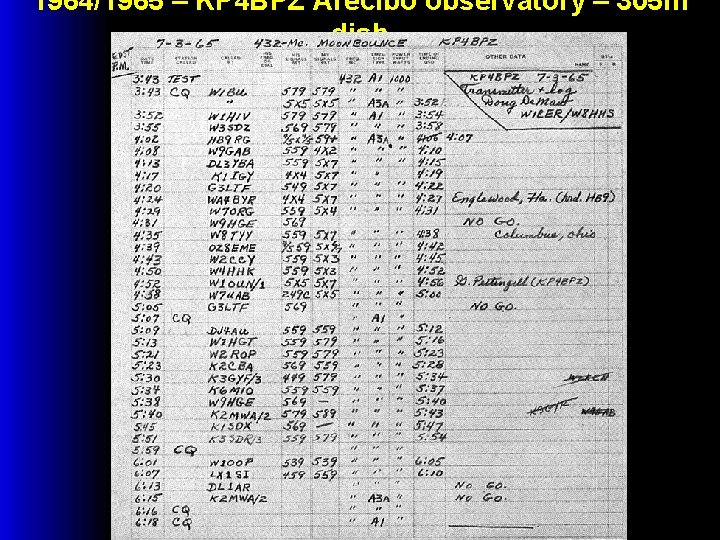 1964/1965 – KP4BPZ Arecibo observatory – 305 m
dish
7-3-65 432-Mc. MOONBOUNCE KP4BPZ
EDT P.M. OTHER DATA
3:43 TEST 432 A1 1000 KP4BPZ 7-3-65
3:43 CQ W1BU 579 579 " " " Transmitter & log
" 5X5 5X5 " A3A " 3:52 Doug DeMaw
3:52 W1HIV 579 579 " A1 " 3:54 W1CER/W8HHS
3:55 W3SDZ 569 579 " " " 3:58
4:02 HB9RG 59+ " A3A " 4:07
4:08 W9GAB 559 4X2 " " " 4:10
4:13 DL3YBA 559 5X7 " " " 4:15
4:17 K1IGY 4X4 5X7 " " 4:19
4:20 G3LTF 549 5X7 " " " 4:22
4:24 WA4BYR 4X4 5X7 " " " 4:27 Englewood, Fla. (hrd. HB9)
4:29 W7ORG 559 5X4 " " " 4:31
4:31 W9HGE 569 NO GO.
4:35 W8TYY 559 5X7 " " " 4:38 Columbus, Ohio
4:39 OZ8EME " " " 4:42
4:43 W2CCY 559 5X3 " " " 4:45
4:50 W4HHK 559 5X3 " " " 4:52
4:52 W1OUN/1 5X5 5X7 " " " 4:56 G. Pettengill (KP4BPZ)
4:58 249C 5X5 " " " 5:00
5:05 G3LTF 569 NO GO.
5:07 CQ " A1 "
5:09 DJ4AU 559 559 " " " 5:12
5:13 W1HGT 559 579 " " " 5:16
5:21 W2ROP 559 579 " " " 5:23
5:23 K2CBA 569 559 " " " 5:28
5:30 K3GYF/3 449 579 " " " 5:34
5:34 K6MIO 559 559 " " " 5:37
5:38 W9HGE 569 — " " " 5:40
5:40 K2MWA/2 579 589 " " " 5:43
5:45 K1SDX 569 — " " " 5:47
5:51 559 579 " " " 5:54
5:59 CQ " " "
6:01 W1OOP 539 539 " " " 6:05
6:07 LX1SI 459 559 " " " 6:10
6:13 DL1AR " " " NO GO.
6:15 K2MWA/2 " A3A " NO GO.
6:16 CQ " " "
6:18 CQ " A1 "